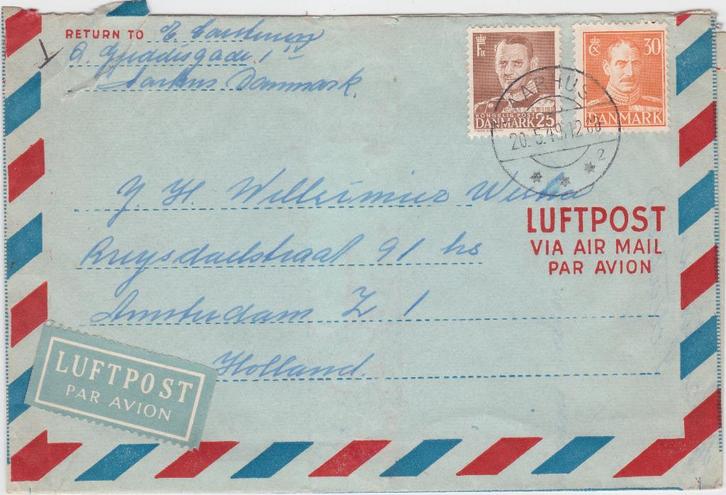 RETURN TO E.
Gjeddisgade 1
Aarhus Danmark.
FR
KONGELIG POST
DANMARK 25
CX 30
DANMARK
AARHUS
20.5.49.12
2
J H Willeimier
Ruysdaelstraat 91 hs
Amsterdam Z 1
Holland.
LUFTPOST
VIA AIR MAIL
PAR AVION
LUFTPOST
PAR AVION